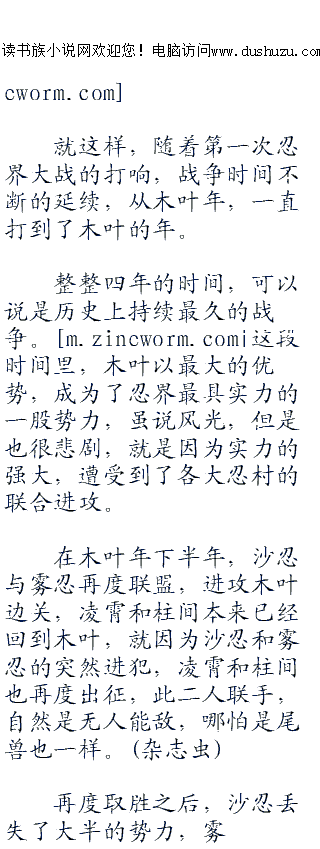 读书族小说网欢迎您！电脑访问www.dushuzu.com
cworm.com]
就这样，随着第一次忍
界大战的打响，战争时间不
断的延续，从木叶年，一直
打到了木叶的年。
整整四年的时间，可以
说是历史上持续最久的战
争。[m.zincworm.com|这段
时间里，木叶以最大的优
势，成为了忍界最具实力的
一股势力，虽说风光，但是
也很悲剧，就是因为实力的
强大，遭受到了各大忍村的
联合进攻。
在木叶年下半年，沙忍
与雾忍再度联盟，进攻木叶
边关，凌霄和柱间本来已经
回到木叶，就因为沙忍和雾
忍的突然进犯，凌霄和柱间
也再度出征，此二人联手，
自然是无人能敌，哪怕是尾
兽也一样。(杂志虫)
再度取胜之后，沙忍丢
失了大半的势力，雾